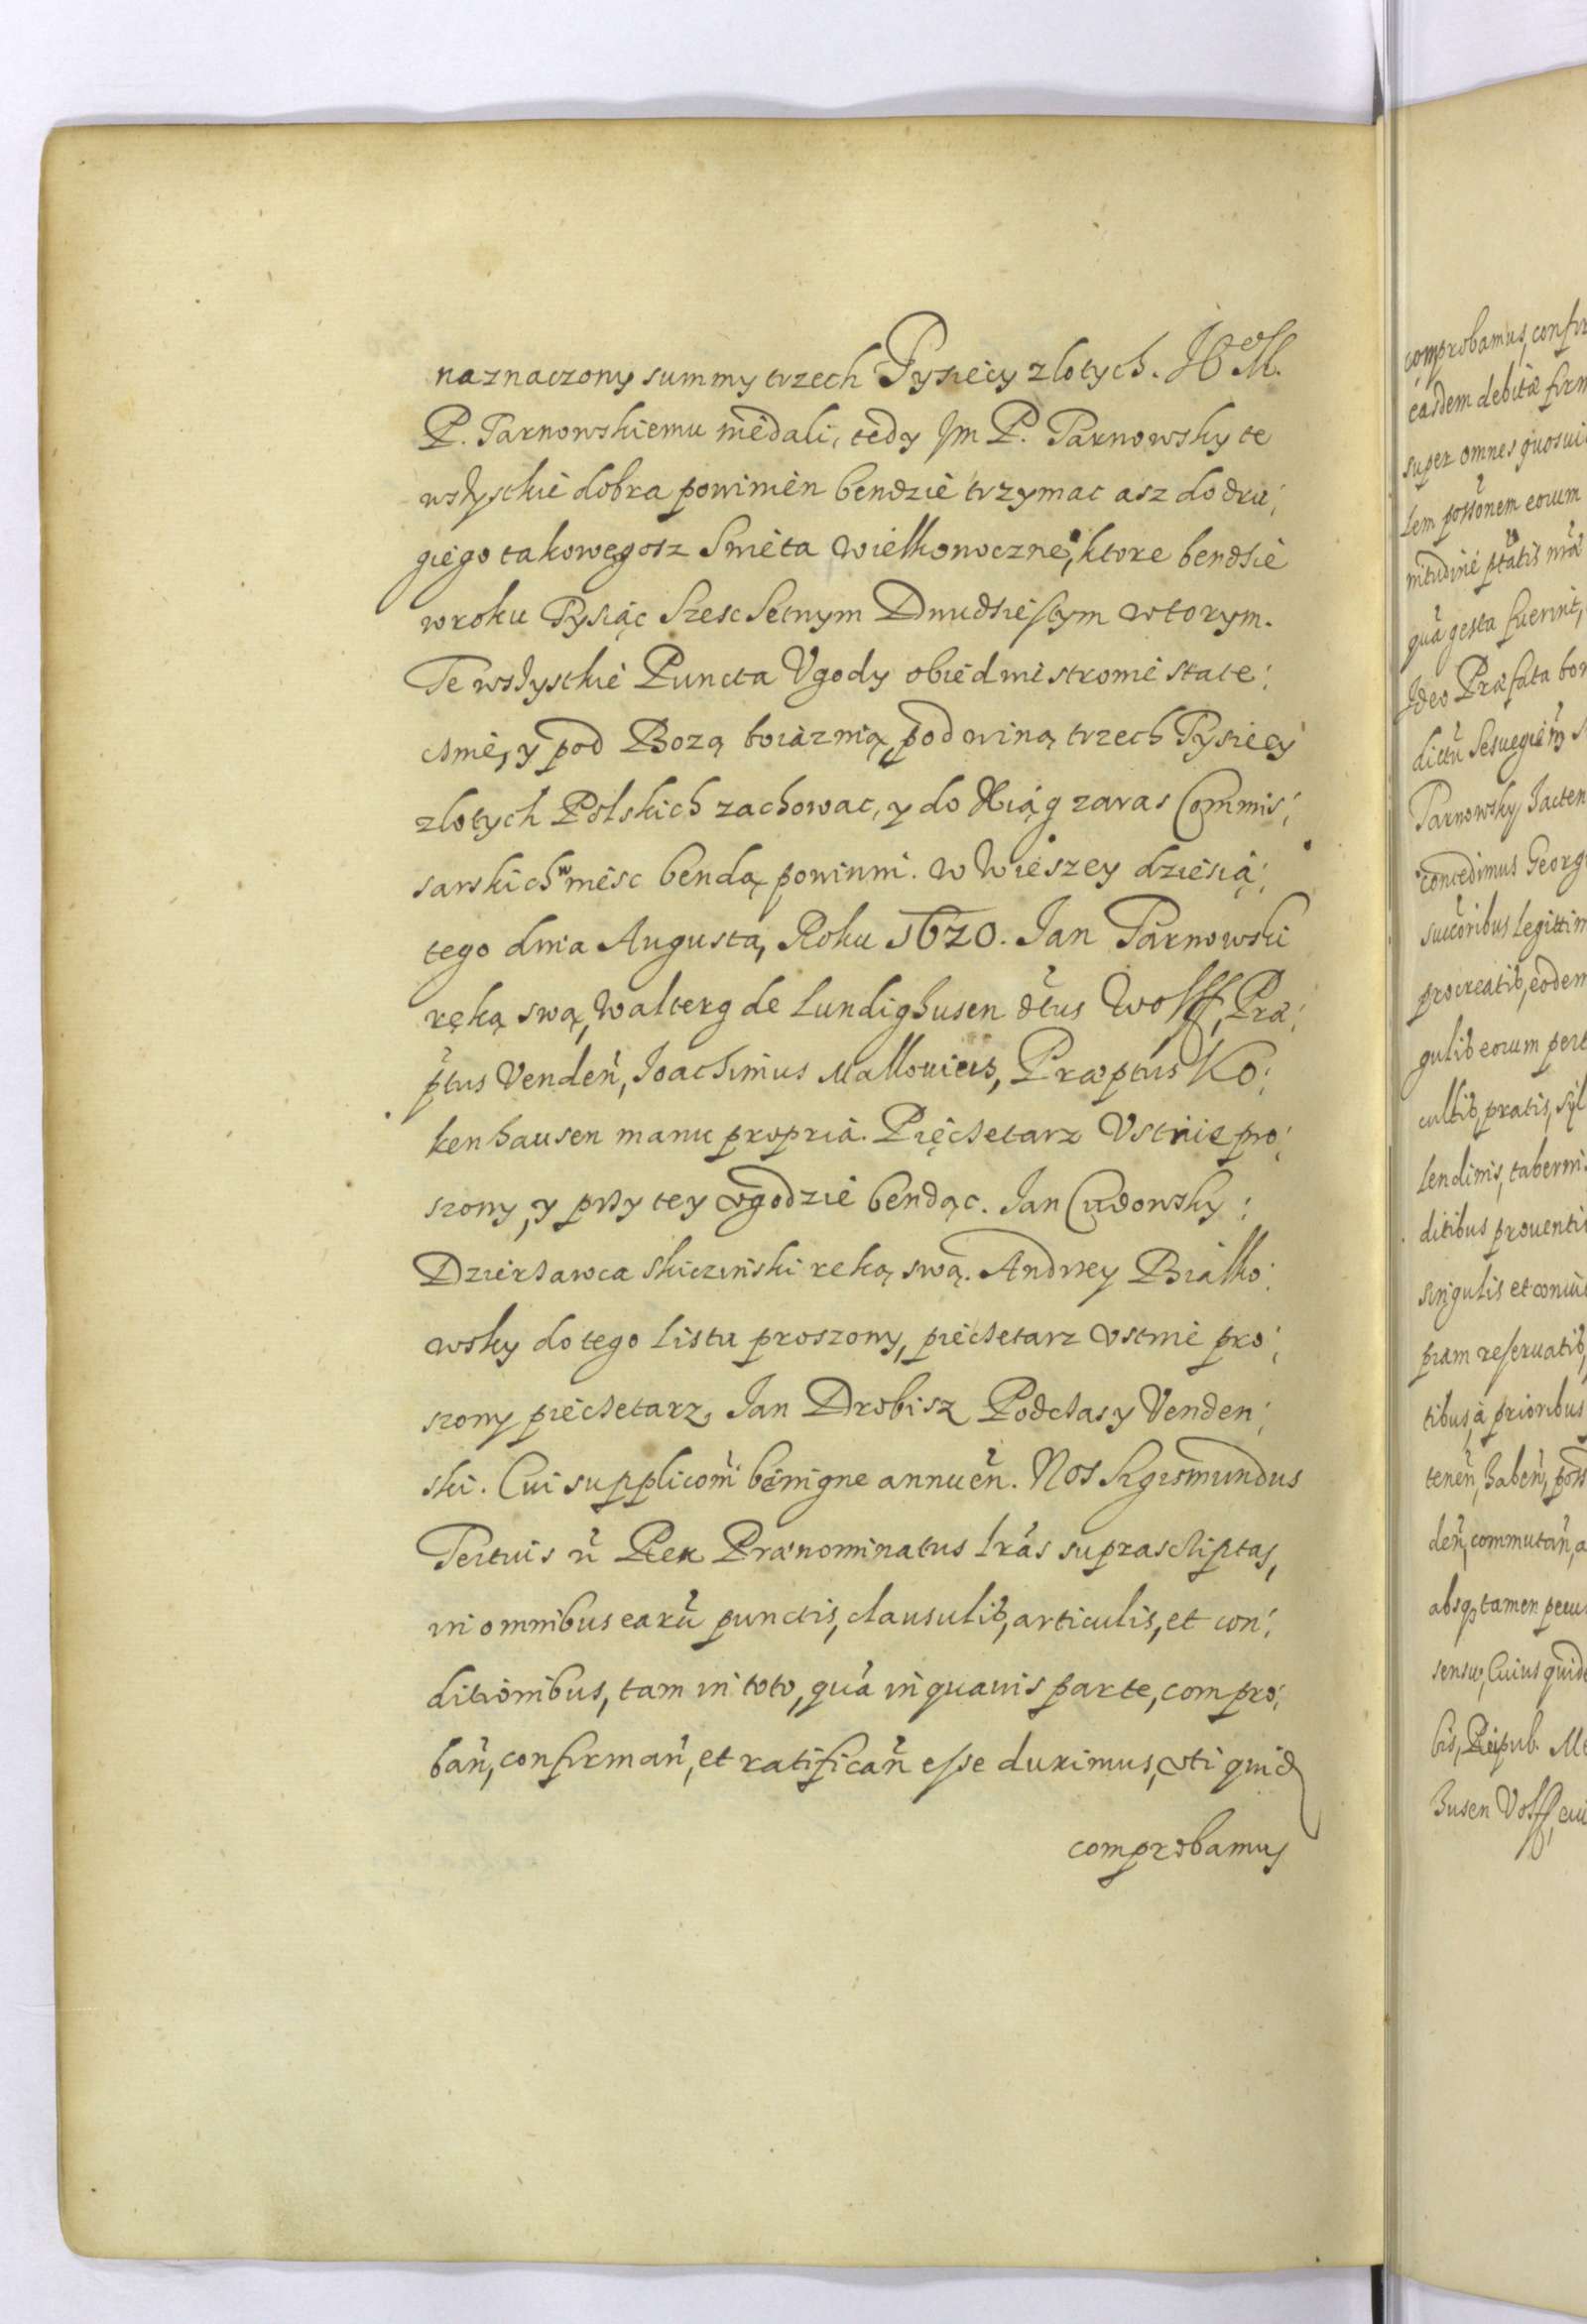 naznaczony summy trzech Tysięcy zlotych. J M.
P. Tarnowskiemu niedali, tedy Jm P. Tarnowsky te
wszyschie dobra powinien bendzie trzymac asz do dru:
giego takowegosz Swieta Wielkonocznei, ktore bendsie
w roku Tysiąc Szesc Setnym Dwudsiestym wtorym.
Te wszystkie Puncta Vgody obiedwie stronie state:
csnie, y pod Bozą boiaznią, pod winą trzech Tysiecy
zlotych Polskich zachowac, y do Xiąg zaras Commis:
sarskich wniesc bendą powinni. W Wieszey dziesią:
tego dnia Augusta, Roku 1620. Jan Tarnowski
ręką swą, Walterg de Lundighusen dtus Wolff, Præ:
ptus Venden, Joachimus Mallouicus, Præptus Ko:
kenhausen manu propria. Pięchetarz Vstnie pro:
szony, y przy tey vgodzie bendąc. Jan Cudowsky:
Dziersawca Skiczinski reką swą. Andrzey Bialko:
wsky do tego listu proszony, piechetarz vstnie pro:
szony piechetarz, Jan Drobisz Podchasy Venden:
ski. Cui suppliconi benigne annuen. Nos Sigismundus
Tertuis u Rex Prænominatus lras suprascriptas,
in omnibus earu punctis, clausulib, articulis, et con:
ditionibus, tam in toto, qua in quauis parte, compro:
ban, confirman, et ratifican esse duximus, vti quid
comprobamus
comprobamus, confir
easdem debitæ firm
super omnes quosui
lem possonem eorum
gesta fuerint,
Ideo Præfata bon
Tarnowsky Jacten
concedimus Georgi
succoribus legittim
procreatib, eodem
gulib eorum pert
cultib, pratis, syl
tabernis
ditibus prouenti
singulis et conui
piam reseruatib,
tibus, a prioribus
tenen, haben, poss
den, commutan, a
absq tamen pecu
sensu, Cuius quide
bis, Reipub. Me
husen Volff, cui